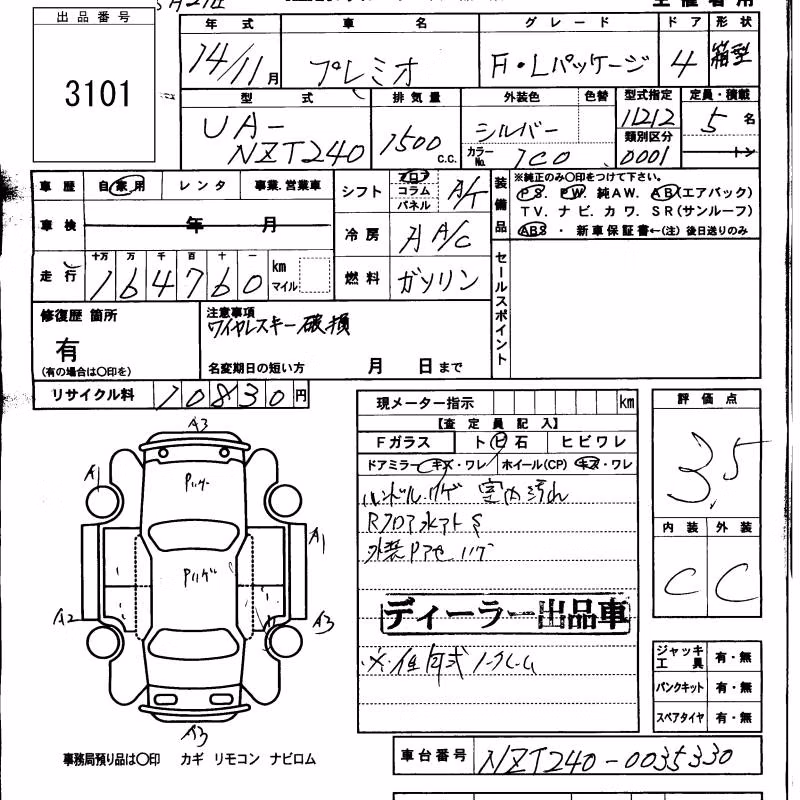 出品番号
3101
年式 車名 グレード ドア 形状
14/11月 プレミオ F・Lパッケージ 4 箱型
型式 排気量 外装色 色替 型式指定 定員・積載
UA-NZT240 1500c.c. シルバー 11212 5名
カラーNo. 1C0 類別区分 0001 トン
車歴 自家用 レンタ 事業.営業車
シフト フロア コラム パネル A/T
装備品
※純正のみ○印をつけて下さい。
PS. PW. 純AW. AB(エアバッグ)
TV. ナビ. カワ. SR(サンルーフ)
ABS ・ 新車保証書←(注) 後日送りのみ
車検 年 月
冷房 A A/C
走行 十万 万 千 百 十 一
164760 km マイル
燃料 ガソリン
セールスポイント
修復歴 箇所
有
(有の場合は○印を)
注意事項
ワイヤレスキー破損
名変期日の短い方 月 日まで
リサイクル料 10830円
現メーター指示 km
【査定員記入】
Fガラス トビ石 ヒビワレ
ドアミラー キズ・ワレ ホイール(CP) キズ・ワレ
ハンドルハゲ 室内汚れ
Rフロア水アトS
外装Pアセ ハゲ
ディーラー出品車
※低年式ノークレーム
評価点
3.5
内装 外装
C C
A3
Pハゲ
A1
A1
Pハゲ
A2
A1
A3
A3
ジャッキ工具 有・無
パンクキット 有・無
スペアタイヤ 有・無
事務局預り品は○印 カギ リモコン ナビロム
車台番号 NZT240-0035330